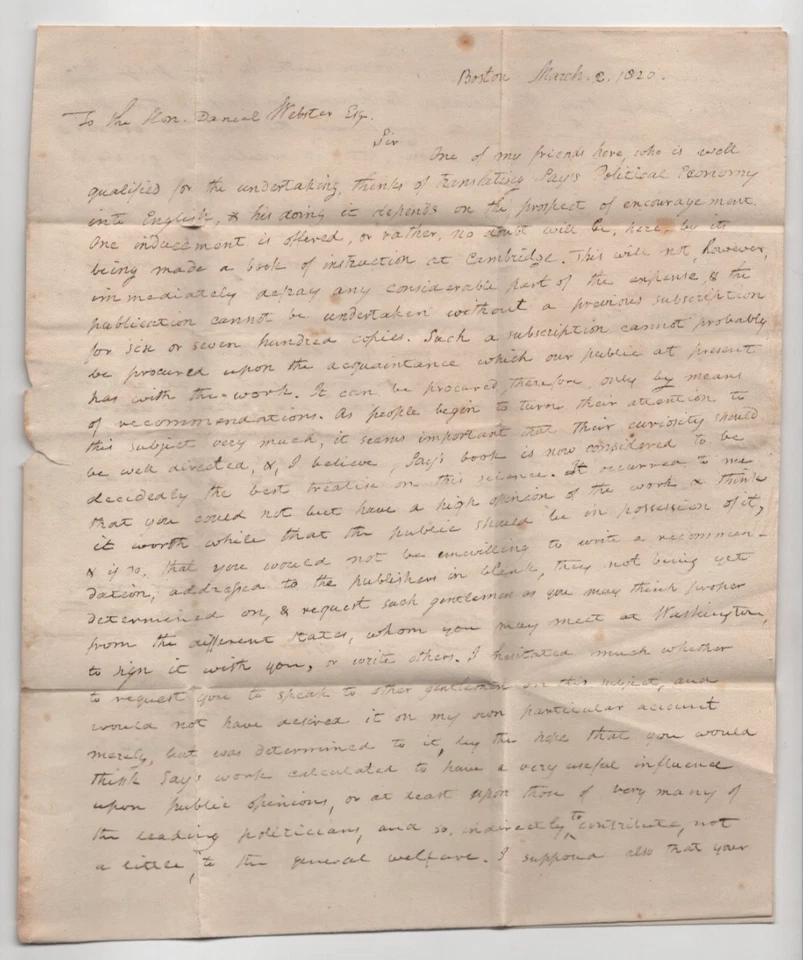 Boston March 2. 1820.
To the Hon. Daniel Webster Esq.
Sir
One of my friends here, who is well
qualified for the undertaking, thinks of translating Say's Political Economy
into English, & his doing it depends on the prospect of encouragement.
One inducement is offered, or rather, no doubt will be, here, by its
being made a book of instruction at Cambridge. This will not, however,
immediately defray any considerable part of the expense, & the
publication cannot be undertaken without a previous subscription
for six or seven hundred copies. Such a subscription cannot probably
be procured upon the acquaintance which our public at present
has with the work. It can be procured, therefore, only by means
of recommendations. As people begin to turn their attention to
this subject very much, it seems important that their curiosity should
be well directed, &, I believe, Say's book is now considered to be
decidedly the best treatise on this science. It occurred to me
that you could not but have a high opinion of the work & think
it worth while that the public should be in possession of it,
& if so, that you would not be unwilling to write a recommen-
dation, addressed to the publishers in blank, they not being yet
determined on, & request such gentlemen as you may think proper
from the different states, whom you may meet at Washington,
to sign it with you, or write others. I hesitated much whether
to request you to speak to other gentlemen on this subject, and
would not have desired it on my own particular account
merely, but was determined to it, by the hope that you would
think Say's work calculated to have a very useful influence
upon public opinions, or at least upon those of very many of
the leading politicians, and so, indirectly, to contribute, not
a little, to the general welfare. I supposed also that your